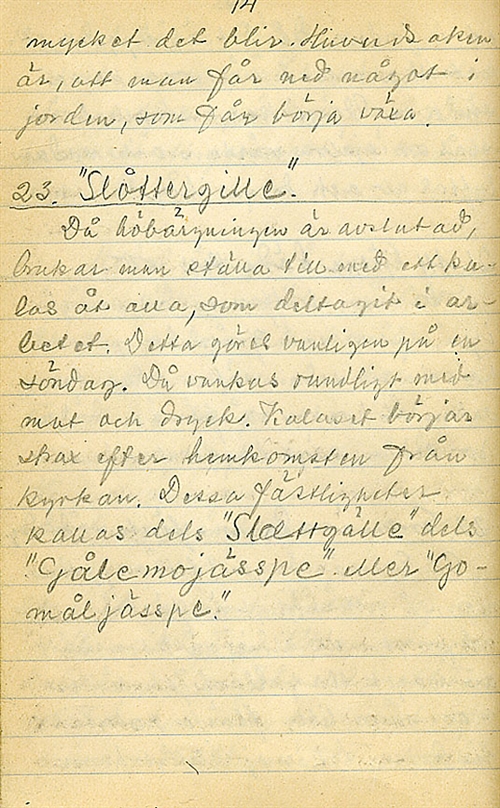 14
mycket det blir. Huvudsaken
är, att man får ned något i
jorden, som får börja växa.
23. "Slåttergille".
Då höbärgningen är avslutad,
brukar man ställa till med ett ka-
las åt alla, som deltagit i ar-
betet. Detta göres vanligen på en
söndag. Då vankas rundligt med
mat och dryck. Kalaset börjar
strax efter hemkomsten från
kyrkan. Dessa fästligheter
kallas dels "Slåttgälle" dels
"Gålemojässpe" eller "Go-
måljässpe."